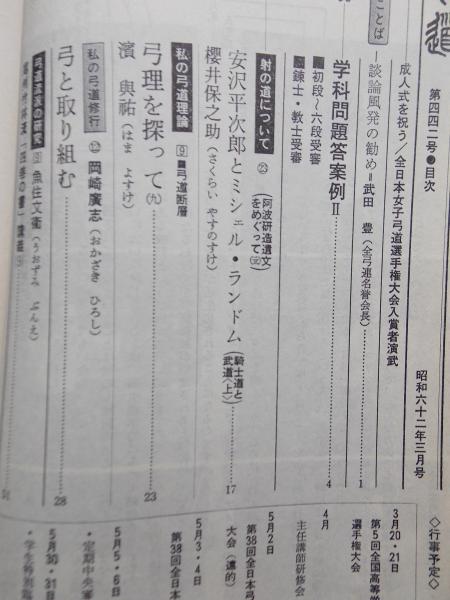 弓道
第四四二号●目次
昭和六十二年三月号
成人式を祝う/全日本女子弓道選手権大会入賞者演武
ことば
談論風発の勧め━武田 豊(全弓連名誉会長)……1
学科問題答案例Ⅱ……4
■初段~六段受審
■錬士・教士受審
射の道について ㉓(阿波研造遺文をめぐって㊁)
安沢平次郎とミシェル・ランドム(騎士道と武道〈上〉)……17
櫻井保之助(さくらい やすのすけ)
私の弓道理論 ⑨■弓道断層
弓理を探って(九)……23
濱 與祐(はま よすけ)
私の弓道修行 ⑫ 岡崎廣志(おかざき ひろし)
弓と取り組む……28
弓道流派の研究 ⑨ 魚住文衞(うおずみ ぶんえ)
◇行事予定◇
3月20・21日
第5回全国高等学
選手権大会
4月
主任講師研修会
5月2日
第38回全日本弓
大会(遠的)
5月3・4日
第38回全日本
5月5・6日
・定期中央審
5月30・31日
・学生特別臨